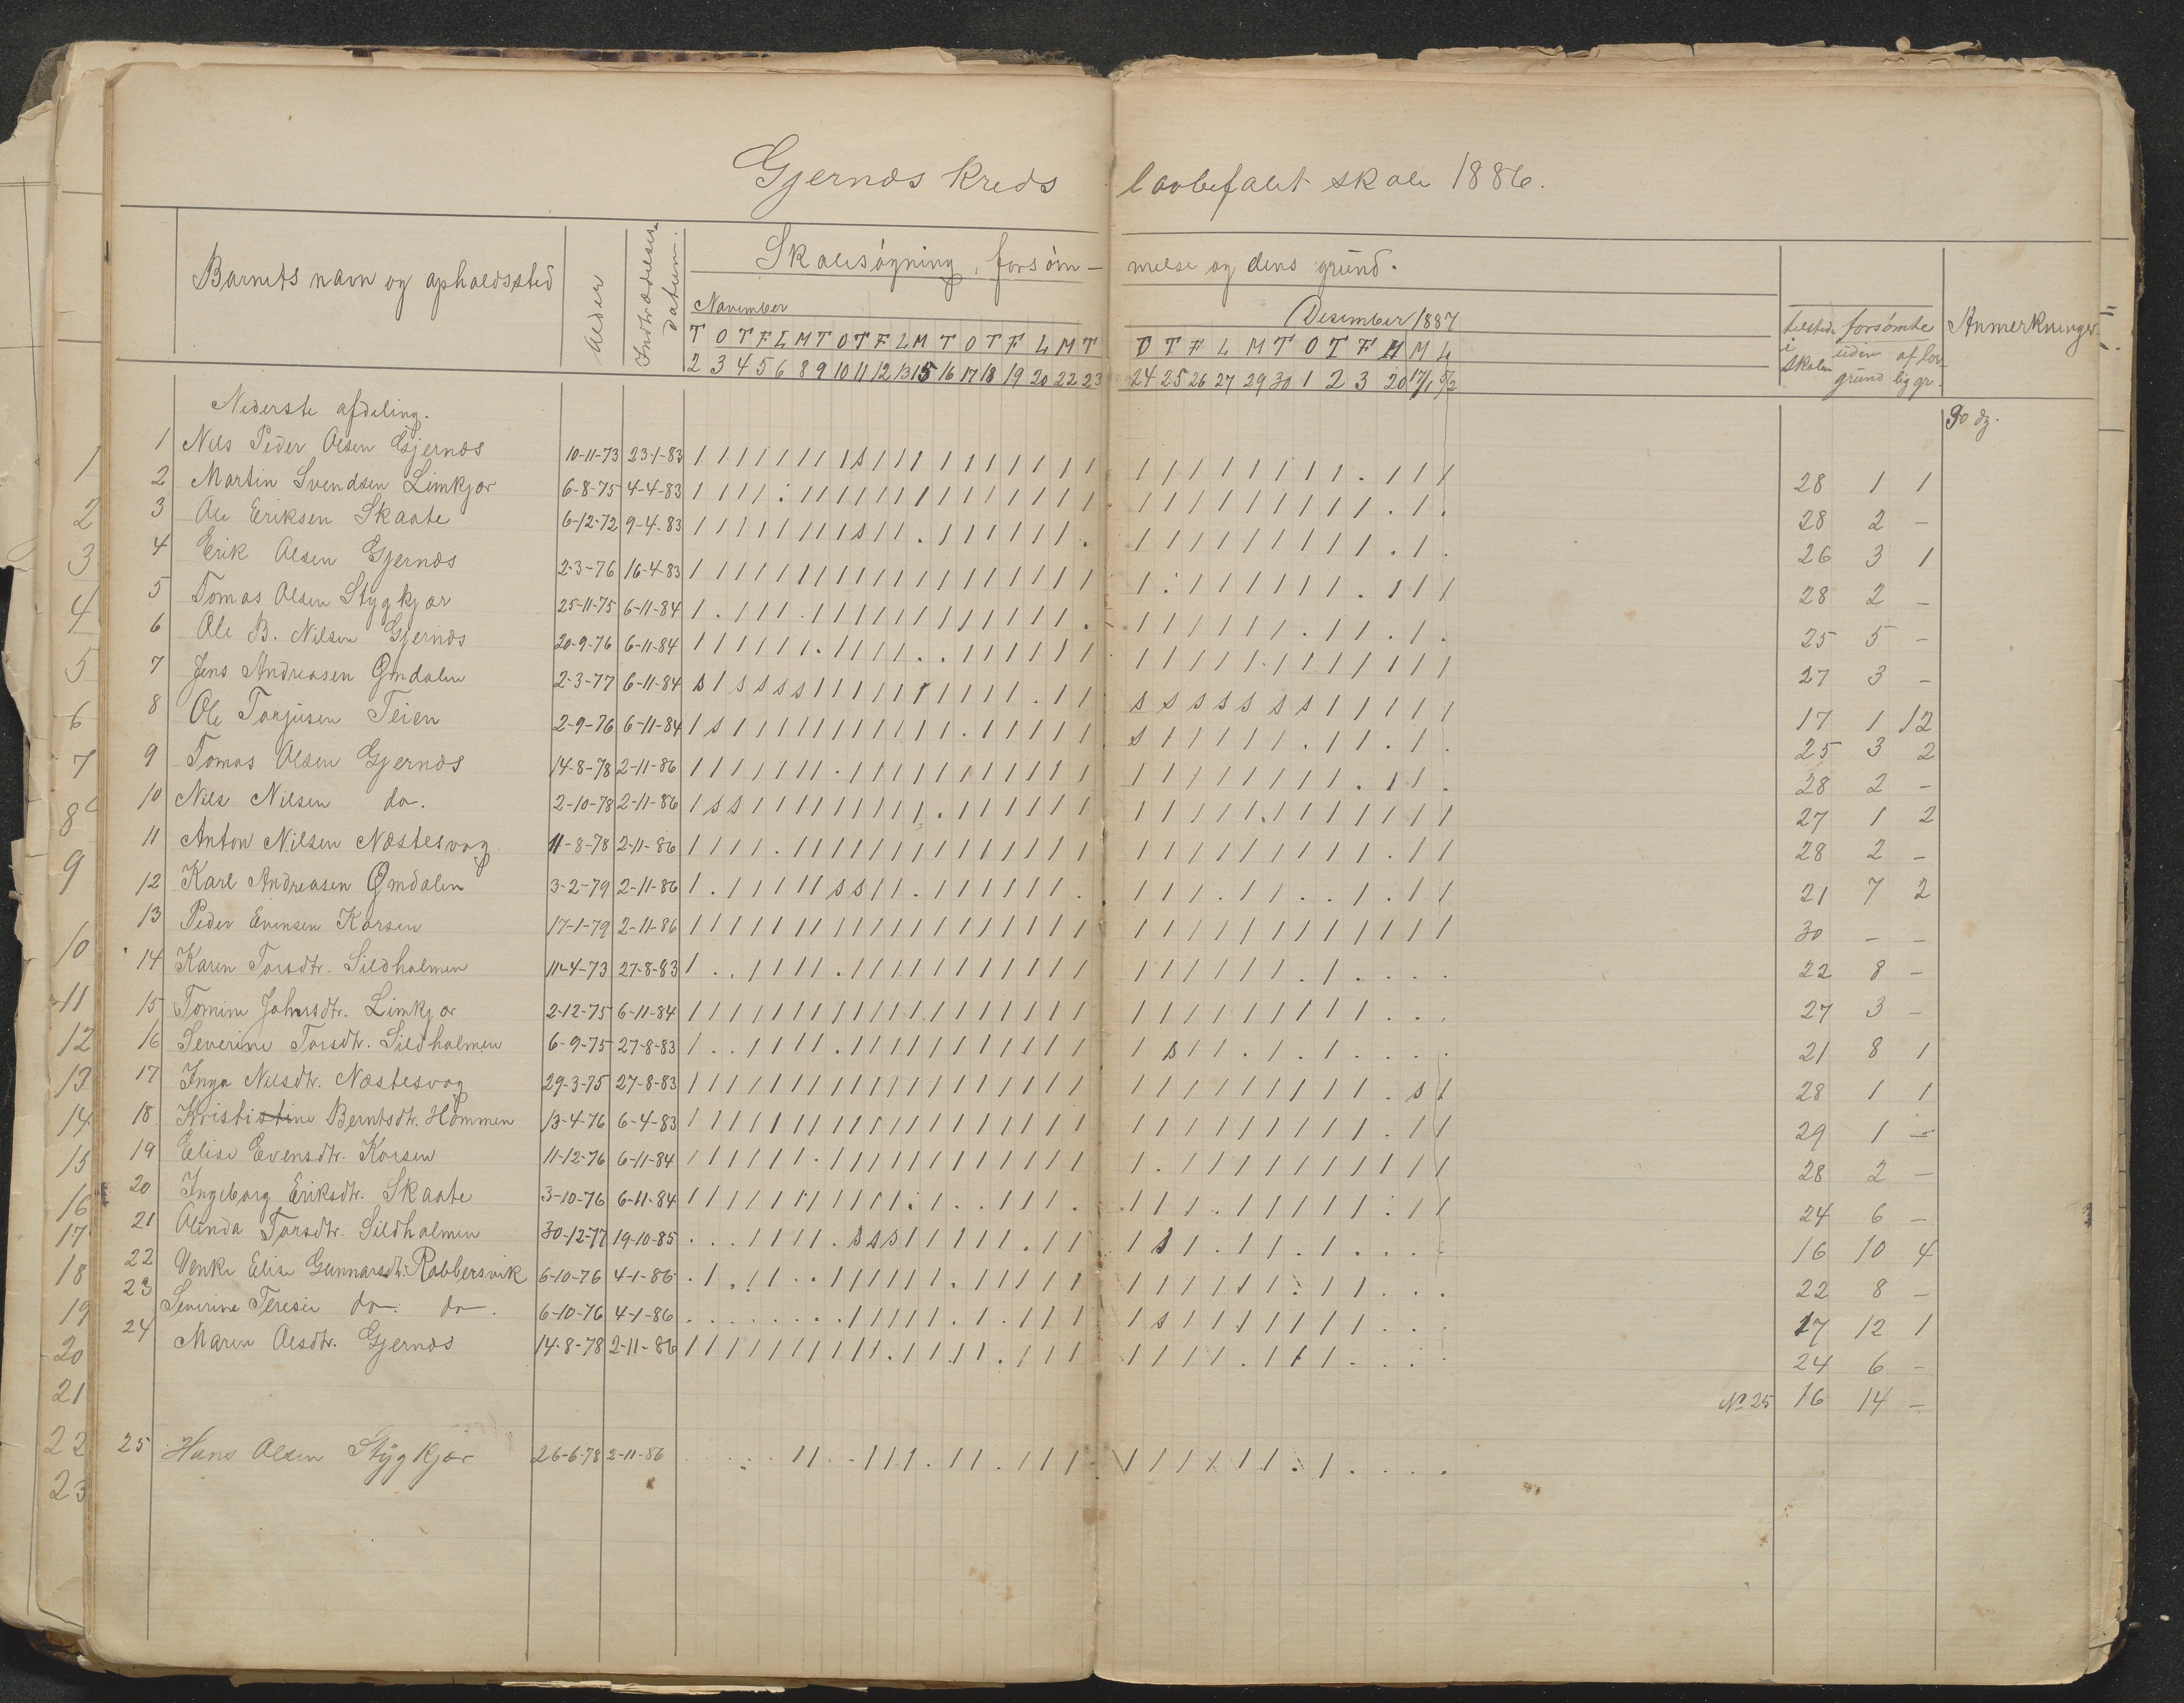 Gjernæs kreds lovbefalet skole 1886.
Barnets navn og opholdssted
Alder
Indtrædelses datum.
Skolesøgning, forsøm- melse og dens grund.
November
Desember 1887
tilstede i skolen
forsømte
uden grund
af lov lig gr.
Anmerkninger.
T O T F L M T O T F L M T O T F L M T O T F L M T O T F M M L
2 3 4 5 6 8 9 10 11 12 13 15 16 17 18 19 20 22 23 24 25 26 27 29 30 1 2 3 20 17/1 5/2
Nederste afdeling.
30 dg.
1 Nils Peder Olsen Gjernæs 10-11-73 23-1-83 28 1 1
2 Martin Svendsen Limkjær 6-8-75 4-4-83 28 2 -
3 Ole Eriksen Skaate 6-12-72 9-4-83 26 3 1
4 Erik Olsen Gjernæs 2-3-76 16-4-83 28 2 -
5 Tomas Olsen Stygkjær 25-11-75 6-11-84 25 5 -
6 Ole B. Nilsen Gjernæs 20-9-76 6-11-84 27 3 -
7 Jens Andreasen Omdalen 2-3-77 6-11-84 17 1 12
8 Ole Torjusen Teien 2-9-76 6-11-84 25 3 2
9 Tomas Olsen Gjernæs 14-8-78 2-11-86 28 2 -
10 Nils Nilsen do. 2-10-78 2-11-86 27 1 2
11 Anton Nilsen Næstesvag 11-8-78 2-11-86 28 2 -
12 Karl Andreasen Omdalen 3-2-79 2-11-86 21 7 2
13 Peder Evensen Korsen 17-1-79 2-11-86 30 - -
14 Karen Torsdtr. Sildholmen 11-4-73 27-8-83 22 8 -
15 Tomine Johnsdtr. Limkjær 2-12-75 6-11-84 27 3 -
16 Severine Torsdtr. Sildholmen 6-9-75 27-8-83 21 8 1
17 Inga Nilsdtr. Næstesvag 29-3-75 27-8-83 28 1 1
18 Krististine Berntsdtr. Hommen 13-4-76 6-4-83 29 1 -
19 Elise Evensdtr. Korsen 11-12-76 6-11-84 28 2 -
20 Ingeborg Eriksdtr. Skaate 3-10-76 6-11-84 24 6 -
21 Olinda Torsdtr. Sildholmen 30-12-77 19-10-85 16 10 4
22 Venke Elise Gunnarsdtr. Robbersvik 6-10-76 4-1-86 22 8 -
23 Severine Teresie do. do. 6-10-76 4-1-86 17 12 1
24 Maren Olsdtr. Gjernæs 14-8-78 2-11-86 24 6 -
No 25 16 14 -
25 Hans Olsen Stygkjær 26-6-78 2-11-86
1
2
3
4
5
6
7
8
9
10
11
12
13
14
15
16
17
18
19
20
21
22
23